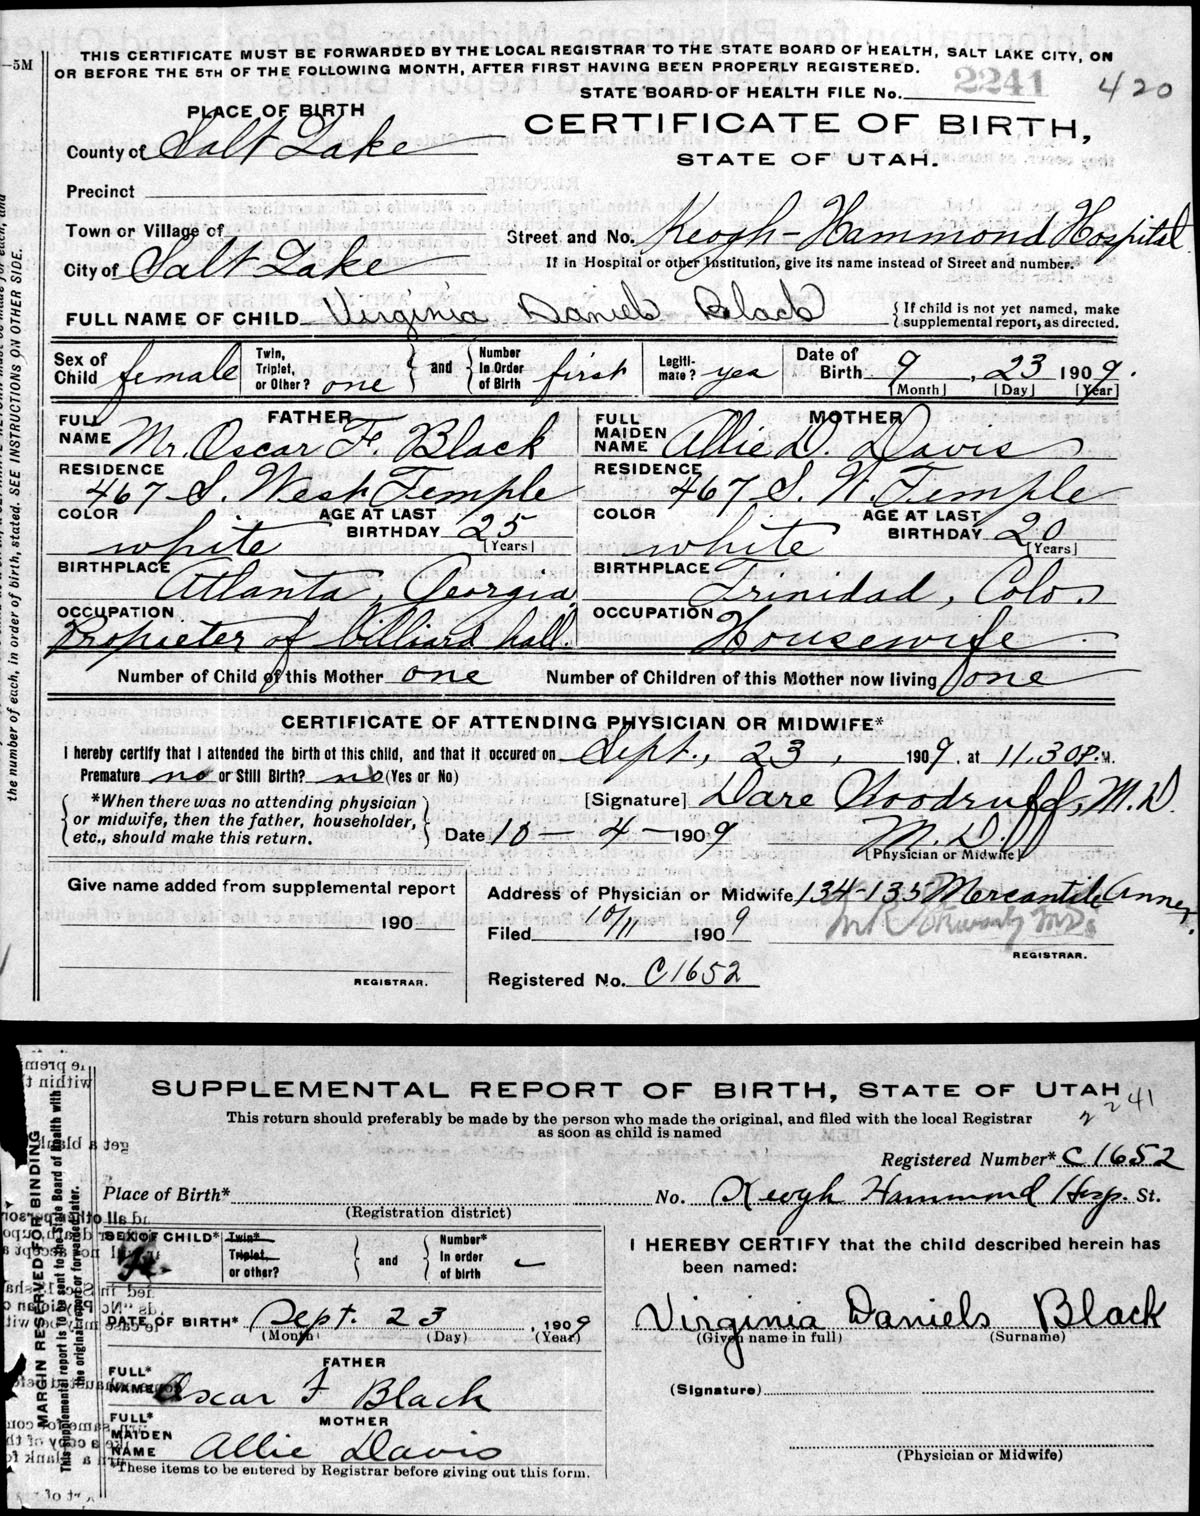 THIS CERTIFICATE MUST BE FORWARDED BY THE LOCAL REGISTRAR TO THE STATE BOARD OF HEALTH, SALT LAKE CITY, ON
OR BEFORE THE 5TH OF THE FOLLOWING MONTH, AFTER FIRST HAVING BEEN PROPERLY REGISTERED.
—5M
STATE BOARD OF HEALTH FILE No. 2241
420
PLACE OF BIRTH
CERTIFICATE OF BIRTH,
STATE OF UTAH.
County of Salt Lake
Precinct
Town or Village of
Street and No. Keogh-Hammond Hospital
City of Salt Lake
If in Hospital or other Institution, give its name instead of Street and number.
FULL NAME OF CHILD Virginia Daniels Black
{If child is not yet named, make supplemental report, as directed.
Sex of Child female
Twin, Triplet, or Other? one
and
Number in Order of Birth first
Legitimate? yea
Date of Birth 9, 23 1909.
[Month] [Day] [Year]
the number of each, in order of birth, stated. SEE INSTRUCTIONS ON OTHER SIDE.
FATHER
FULL NAME Mr. Oscar F. Black
MOTHER
FULL MAIDEN NAME Allie D. Davis
RESIDENCE 467 S. West Temple
RESIDENCE 467 S. W. Temple
COLOR white AGE AT LAST BIRTHDAY 25 [Years]
COLOR white AGE AT LAST BIRTHDAY 20 [Years]
BIRTHPLACE Atlanta, Georgia
BIRTHPLACE Trinidad, Colo.
OCCUPATION Propieter of billiard hall.
OCCUPATION Housewife
Number of Child of this Mother one
Number of Children of this Mother now living one
CERTIFICATE OF ATTENDING PHYSICIAN OR MIDWIFE*
I hereby certify that I attended the birth of this child, and that it occured on Sept., 23, 1909. at 11.30P.M.
Premature no or Still Birth? no (Yes or No)
*When there was no attending physician or midwife, then the father, householder, etc., should make this return.
[Signature] Dare Woodruff, M.D.
Date 10 — 4 — 1909
M.D.
[Physician or Midwife]
Give name added from supplemental report
190
REGISTRAR.
Address of Physician or Midwife 134-135 Mercantile Annex.
Filed 10/11 1909
M.D.
REGISTRAR.
Registered No. C1652
SUPPLEMENTAL REPORT OF BIRTH, STATE OF UTAH
2241
This return should preferably be made by the person who made the original, and filed with the local Registrar
as soon as child is named
Registered Number* C1652
Place of Birth*
(Registration district)
No. Keogh Hammond Hosp. St.
MARGIN RESERVED FOR BINDING
This supplemental report is to be sent to the State Board of Health with
the original report or forwarded later.
SEX OF CHILD*
Twin* Triplet, or other?
and
Number* In order of birth
I HEREBY CERTIFY that the child described herein has
been named:
DATE OF BIRTH* Sept. 23, 1909
(Month) (Day) (Year)
Virginia Daniels Black
(Given name in full) (Surname)
FATHER
FULL* NAME Oscar F Black
(Signature)
MOTHER
FULL* MAIDEN NAME Allie Davis
(Physician or Midwife)
*These items to be entered by Registrar before giving out this form.